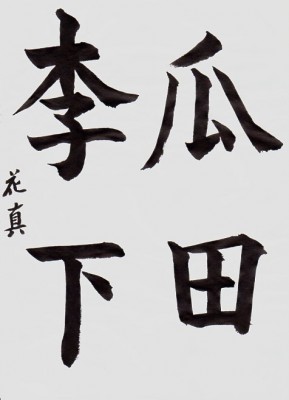 瓜田
李下
花真